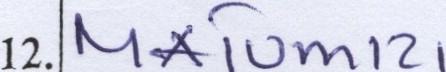 12. MATUMIZI